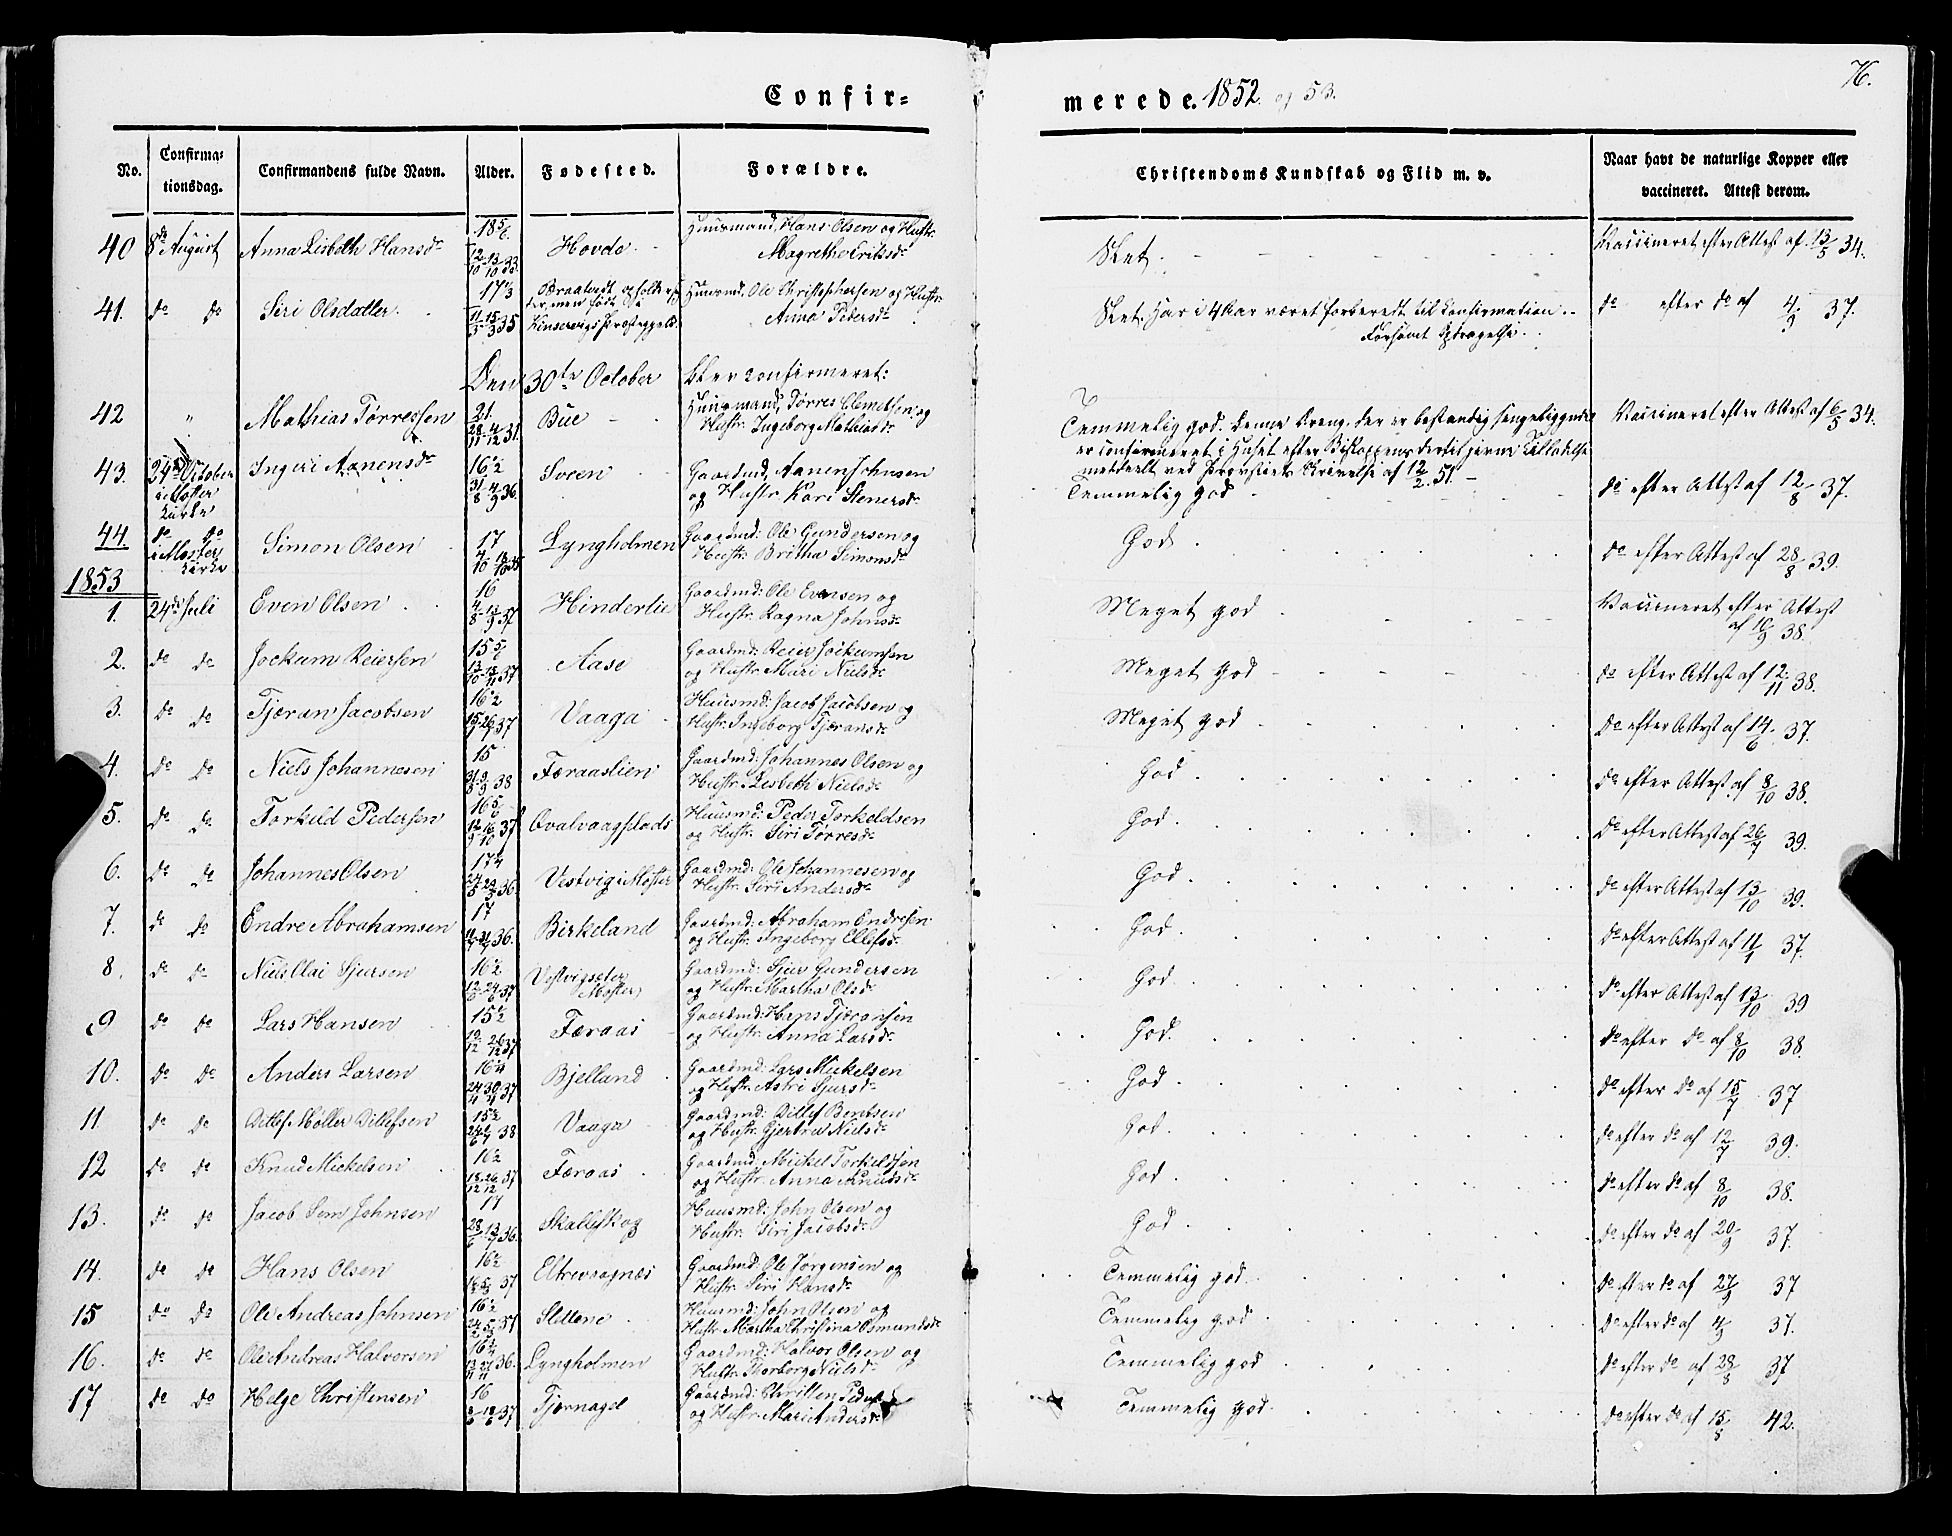 Confir-
merede. 1852 og 53.
76.
No.
Confirma-
tionsdag.
Confirmandens fulde Navn.
Alder.
Fødested.
Forældre.
Christendoms Kundskab og Flid m. v.
Naar havt de naturlige Kopper eller
vaccineret. Attest derom.
40 8de August Anna Lisbeth Hansdr Hovde Huusmand, Hans Olsen og Hustr.
Magrethe Eriksdr
Slet. Vaccineret efter Attest af 13/5 34.
41. do do Siri Olsdatter. 11/3 15/3 35 Huusmd, Ole Christophersen og Hustr.
Anna Pedersdr
Slet. Har i 4 Aar været forberedt til Confirmation.
do efter do af 4/9 37.
Den 30te October blev confirmeret:
42 " Mathias Tørressen 21. 28/11 4/12 31. Bue Huusmand, Tørres Clemetsen og
Hustr. Ingeborg Mathiasdr
Temmelig god. Denne Dreng, der er bestandig sengeliggende
er confirmeret i Huset efter Biskoppens dertil givne Tilladelse
meddeelt ved Provstiets Skrivelse af 12/2 51.
Vaccineret efter Attest af 6/5 34.
43. 24de October
i Moster
Kirke
Ingeri Aanensdr 16½ 31/8 4/9 36. Sveen Gaardmd, Aanen Johnsen
og Hustr. Kari Stenersdr
Temmelig god do efter Attest af 12/8 37.
44. do do
i Moster
Kirke
Simon Olsen 17 Lyngholmen Gaardmd: Ole Gundersen og
Hustr. Britha Simonsdr
God do efter Attest af 28/8 39.
1853
1. 24de Juli Even Olsen 16 4/8 13/9 37 Hinderlie Gaardmd: Ole Evensen og
Hustr. Ragna Johnsdr
Meget god Vaccineret efter Attest
af 10/9 38.
2. do do Jockum Reiersen 15 5/6 Aase Gaardmd: Reier Jockumsen
og Hustr. Mari Nielsdr
Meget God do efter Attest af 12/11 38.
3. do do Tjæran Jacobsen 16½ Vaaga Huusmd: Jacob Jacobsen og
Hustr. Ingeborg Tjæransdr
Meget god do efter Attest af 14/6 37.
4. do do Niels Johannesen 15 31/8 9/9 38 Færaaslien Gaardmd: Johannes Olsen og
Hustr. Lisbeth Nielsdr
God do efter Attest af 8/10 38.
5. do do Torkild Pedersen 16 5/6 Qvalvaagsplads Huusmd: Peder Torkeldsen
og Hustr. Siri Torresdr
God do efter Attest af 26/7 39.
6. do do Johannes Olsen 17¼ Vestvig i Moster Gaardmd: Ole Johannesen og
Hustr. Siri Andersdr
God do efter Attest af 13/10 39.
7. do do Endre Abrahamsen 17 Birkeland Gaardmd: Abraham Endresen
og Hustr. Ingeborg Ellefsdr
God do efter Attest af 11/1 37.
8. do do Niels Olai Sjursen 16½ Gaardmd: Sjur Gundersen
og Hustr. Martha Olsdr
God do efter Attest af 13/10 39
9 do do Lars Hansen 15½ Færaas Gaardmd: Hans Tjæransen
og Hustr. Anna Larsdr
God. do efter do af 8/10 38.
10. do do Anders Larsen 16¼ 24/4 30/4 37 Bjelland Gaardmd: Lars Mickelsen
og Hustr. Astri Sjursdr
God do efter do af 15/7 37
11. do do Ditlef Møller Ditlefsen 15½ Vaaga Gaardmd: Ditlef Bentsen
og Hustr. Gjertru Nielsdr
God do efter do af 12/7 39.
12 do do Knud Mickelsen 16½ 18/12 26/12 37 Færaas Gaardmd: Mickel Torkelssen
og Hustr. Anna Knudsdr
God do efter do af 8/10 38.
13. do do Jacob Sem Johnsen 17 28/6 13/7 36. Skalleskog Huusmd: John Olsen og
Hustr. Siri Jacobsdr
God do efter do af 20/9 37.
14. do do Hans Olsen 16½ Eltrevaagnæs Gaardmd: Ole Jørgensen og
Hustr. Siri Hansdr
Temmelig god do efter do af 27/9 37
15 do do Ole Andreas Johnsen 16½ Slettene Huusmd: John Olsen og
Hustr. Martha Christina Osmundsdr
Temmelig god do efter do af 4/9 37.
16. do do Ole Andreas Halvorsen 16¼ Lyngholmen Gaardmd: Halvor Olsen og
Hustr. Thorborg Nielsdr
Temmelig god do efter do af 28/8 37
17 do do Helge Christensen 16 Tjernagel Gaardmd: Christen
og Hustr. Mari Andersdr
Temmelig god. do efter do af 15/8 42.